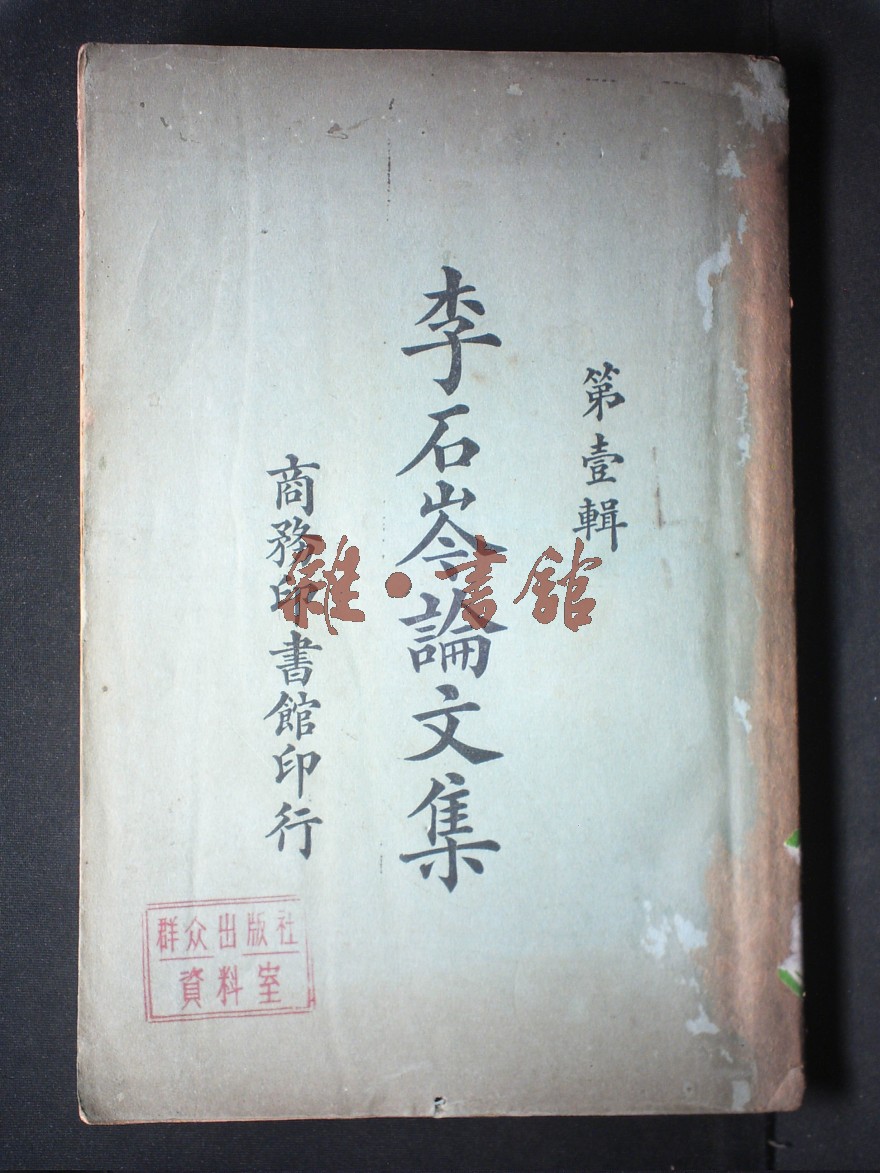 第壹輯
李石岑論文集
商務印書館印行
雜·書館
群众出版社
資料室